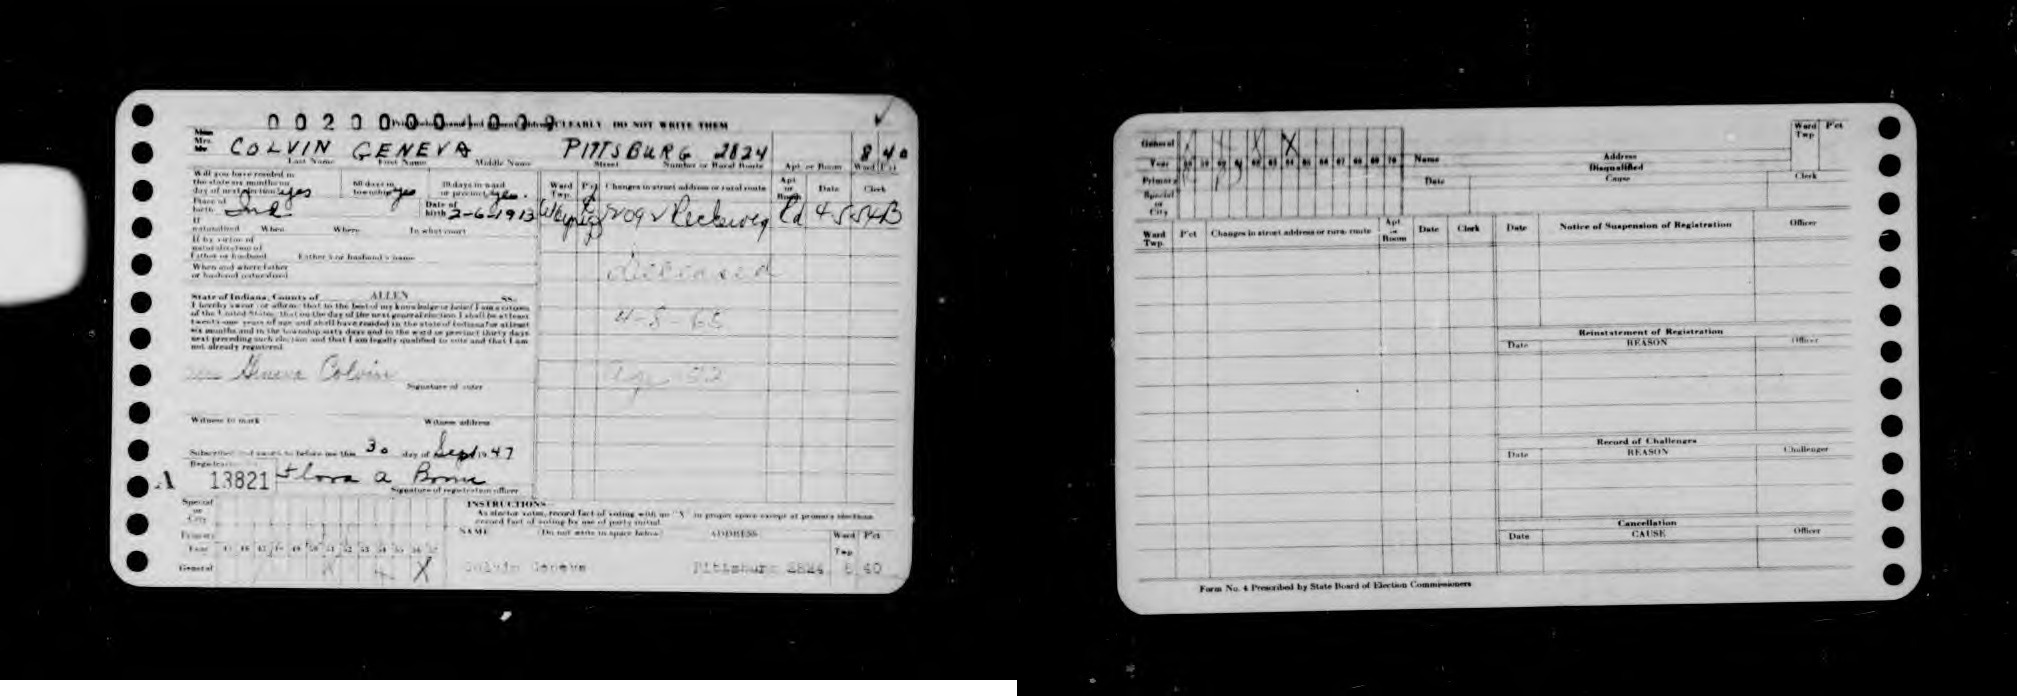 0 0 2 0 0 0 0 1 0 0 9 CLEARLY DO NOT WRITE THEM
Miss
Mrs.
Mr. COLVIN GENEVA PITTSBURG 2824 8 40
Last Name First Name Middle Name Street Number or Rural Route Apt or Room Ward Pct
Will you have resided in
the state six months on
day of next election yes
60 days in
township yes
30 days in ward
or precinct yes.
Ward
Twp.
Pct
Changes in street address or rural route
Apt
or
Room
Date
Clerk
Place of
birth Ind
Date of
birth 2-6-1913
Wayne Rd 4-5-54 B
If
naturalized When Where In what court
If by virtue of
naturalization of
Father or husband Father's or husband's name
When and where father
or husband naturalized
deceased
State of Indiana, County of ALLEN ss.
I hereby swear or affirm that to the best of my knowledge or belief I am a citizen
of the United States, that on the day of the next general election I shall be at least
twenty-one years of age and shall have resided in the state of Indiana for at least
six months and in the township sixty days and in the ward or precinct thirty days
next preceding such election and that I am legally qualified to vote and that I am
not already registered.
4-8-65
age 52
Geneva Colvin
Signature of voter
Witness to mark Witness address
Subscribed and sworn to before me this 30 day of Sept 1947
A 13821 Flora A
Signature of registration officer
Special
or
City
Primary
Year 47 48 49 50 51 52 53 54 55 56 57
General X
INSTRUCTIONS
As elector votes, record fact of voting with an "X" in proper space except at primary elections
record fact of voting by use of party initial.
NAME (Do not write in space below) ADDRESS Ward Pct
Twp
Colvin Geneva Pittsburg 2824 8 40
General X
Year 58 59 60 61 62 63 64 65 66 67 68 69 70
Primary
Special
or
City
Name Address Ward
Twp Pct
Disqualified
Date Cause Clerk
Ward
Twp. Pct Changes in street address or rural route Apt
or
Room Date Clerk
Date Notice of Suspension of Registration Officer
Reinstatement of Registration
Date REASON Officer
Record of Challenges
Date REASON Challenger
Cancellation
Date CAUSE Officer
Form No. 4 Prescribed by State Board of Election Commissioners